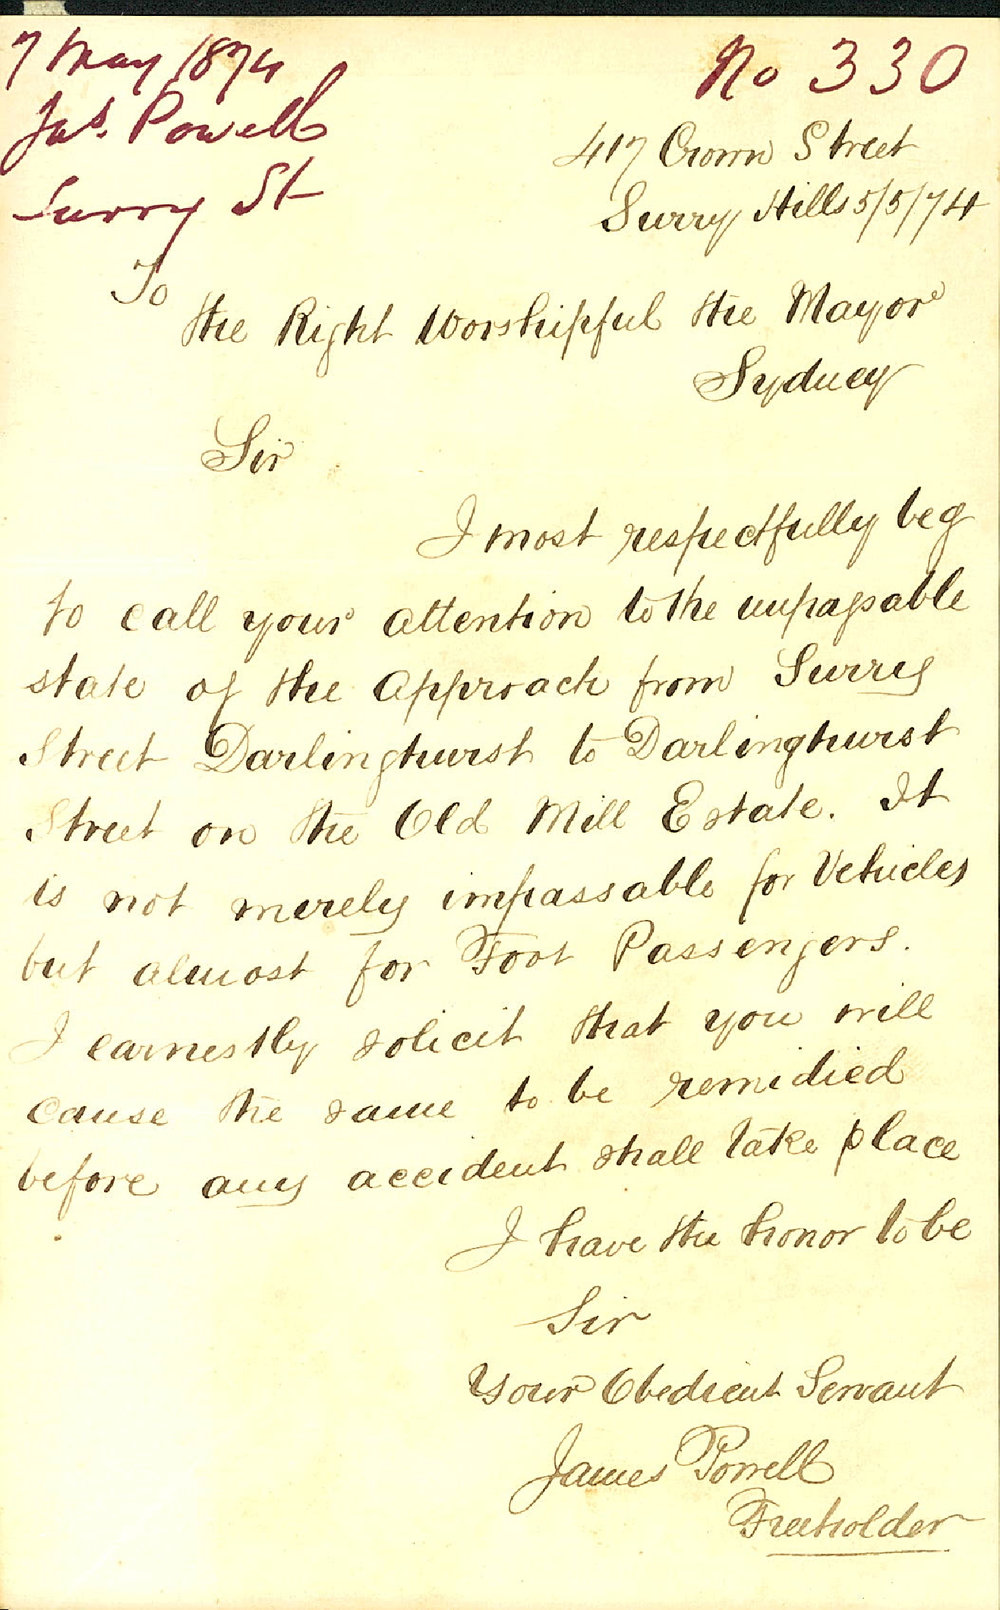 7 May 1874
Jas. Powell
Surry St
No 330
417 Crown Street
Surry Hills 5/5/74
To
the Right Worshipful the Mayor
Sydney
Sir
I most respectfully beg
to call your attention to the unpassable
state of the Approach from Surry
Street Darlinghurst to Darlinghurst
Street on the Old Mill Estate. It
is not merely impassable for Vehicles
but almost for Foot Passengers.
I earnestly solicit that you will
cause the same to be remidied
before any accident shall take place
I have the honor to be
Sir
Your Obedient Servant
James Powell
Freeholder